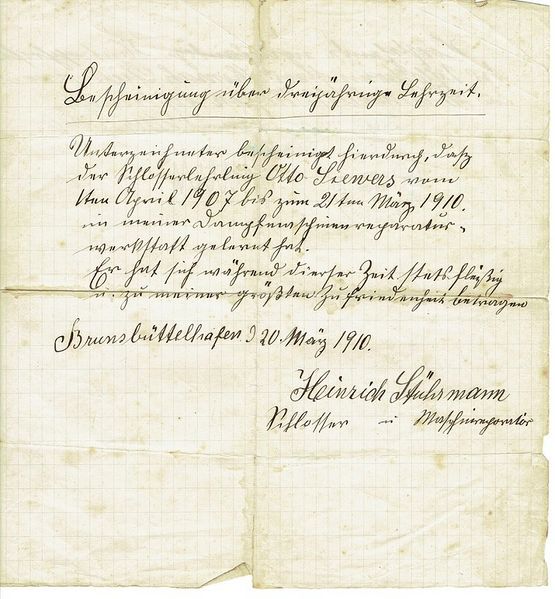 Bescheinigung über dreijährige Lehrzeit.
Unterzeichneter bescheinigt hierdurch, dasz
der Schlosserlehrling Otto Siewers vom
1ten April 1907 bis zum 21ten März 1910.
in meiner Dampfmaschinenreparatur-
werkstatt gelernt hat.
Er hat sich während dierser Zeit stets fleißig
u. zu meiner größten Zufriedenheit betragen
Brunsbüttelhafen d 20. März 1910.
Heinrich Stührmann
Schlosser u Maschinreporatör